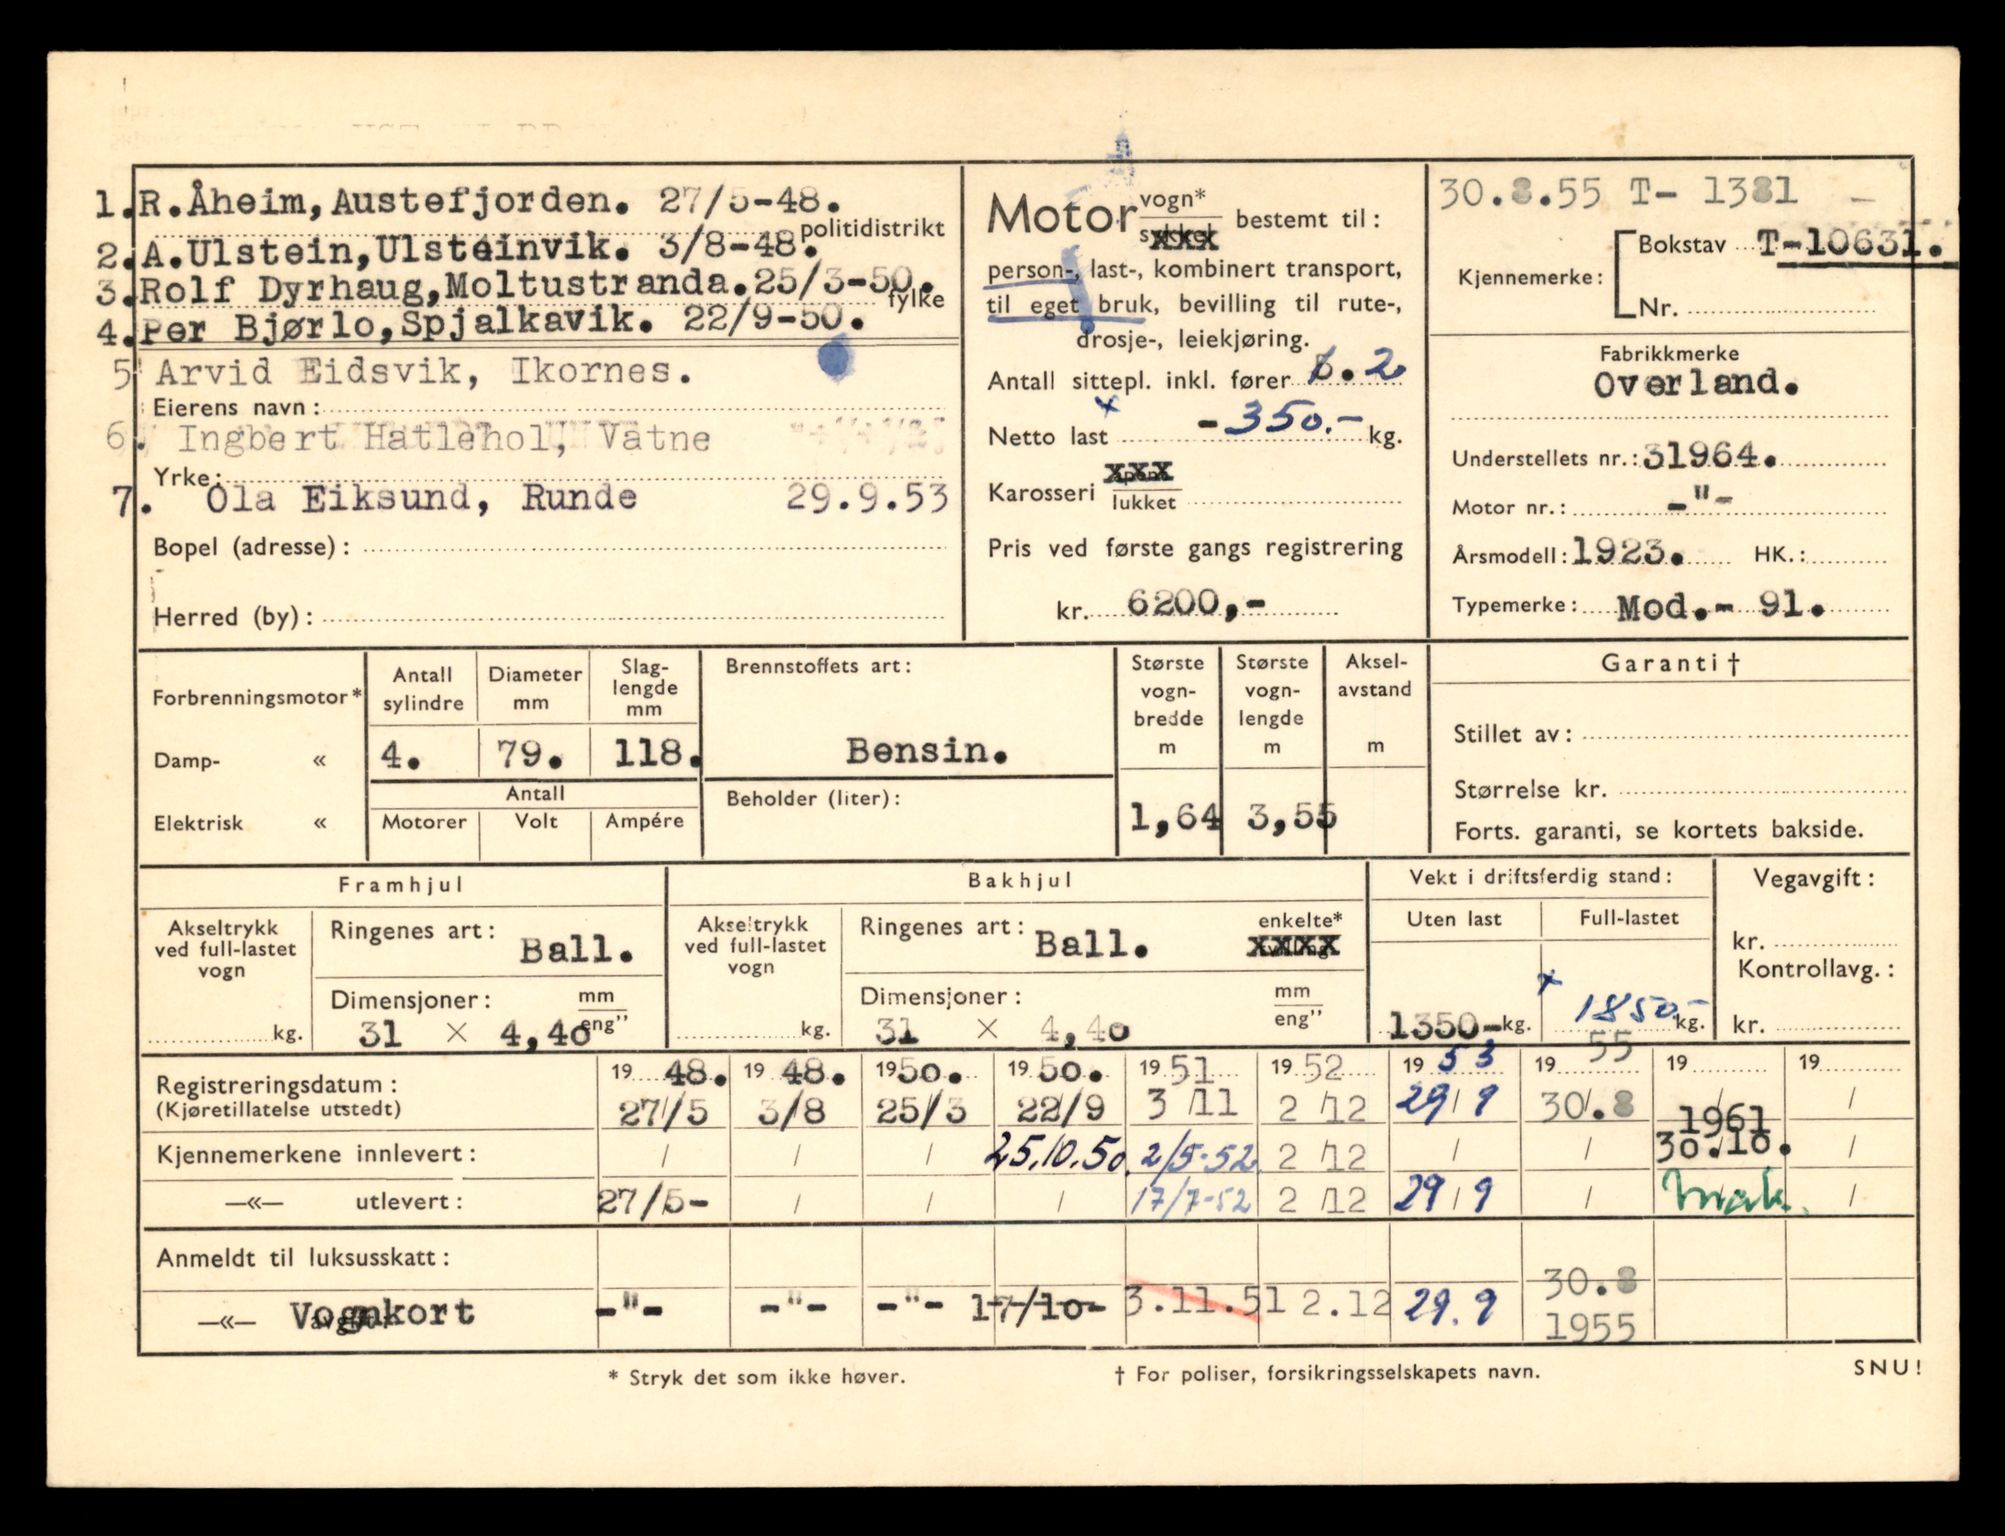 1. R. Åheim, Austefjorden. 27/5-48.
politidistrikt
2. A. Ulstein, Ulsteinvik. 3/8-48.
3. Rolf Dyrhaug, Moltustranda. 25/3-50.
fylke
4. Per Bjørlo, Spjalkavik. 22/9-50.
5 Arvid Eidsvik, Ikornes.
Eierens navn:
6. Ingbert Hatlehol, Vatne
Yrke:
7. Ola Eiksund, Runde 29.9.53
Bopel (adresse):
Herred (by):
Motor vogn* bestemt til:
xxx
person-, last-, kombinert transport,
til eget bruk, bevilling til rute-,
drosje-, leiekjøring.
Antall sittepl. inkl. fører 2
Netto last -350.- kg.
xxx
Karosseri lukket
Pris ved første gangs registrering
kr. 6200,-
30.8.55 T- 1381
Kjennemerke: Bokstav T-10631.
Nr.
Fabrikkmerke
Overland.
Understellets nr.: 31964.
Motor nr.: -"-
Årsmodell: 1923. HK.:
Typemerke: Mod.- 91.
Forbrenningsmotor* Antall sylindre Diameter mm Slag-lengde mm
Damp- « 4. 79. 118.
Antall
Elektrisk « Motorer Volt Ampére
Brennstoffets art:
Bensin.
Beholder (liter):
Største vogn-bredde m Største vogn-lengde m Aksel-avstand m
1,64 3,55
Garanti †
Stillet av:
Størrelse kr.
Forts. garanti, se kortets bakside.
Framhjul
Akseltrykk ved full-lastet vogn
kg.
Ringenes art: Ball.
Dimensjoner: mm
31 × 4,40 eng"
Bakhjul
Akseltrykk ved full-lastet vogn
kg.
Ringenes art: Ball. enkelte*
xxxx
Dimensjoner: mm
31 × 4,40 eng"
Vekt i driftsferdig stand:
Uten last Full-lastet
1350,- kg. 1850.- kg.
Vegavgift:
kr.
Kontrollavg.:
kr.
55
Registreringsdatum: 19 48. 19 48. 19 50. 19 50. 19 51 19 52 19 53 19 19 19
(Kjøretillatelse utstedt) 27/5 3/8 25/3 22/9 3/11 2/12 29/9 30.8 / /
1961
Kjennemerkene innlevert: / / / 25.10.50. 2/5-52 2/12 / / 30.10. /
—«— utlevert: 27/5- / / / 17/7-52 2/12 29/9 / /
Anmeldt til luksusskatt:
30.8
—«— Vognkort -"- -"- -"- 17/10- 3.11.51 2.12 29.9
1955
* Stryk det som ikke høver.
† For poliser, forsikringsselskapets navn.
SNU!